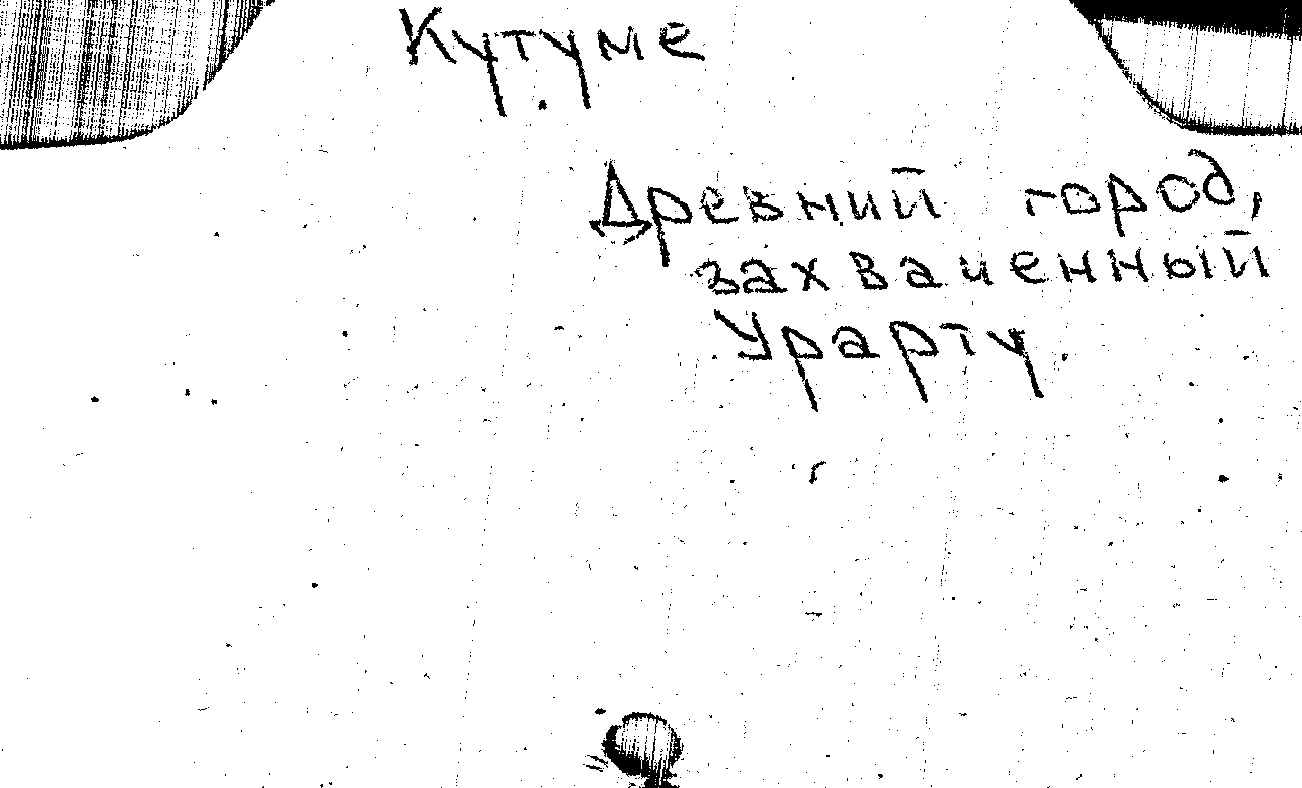 Кутуме
Древний город,
захваченный
Урарту